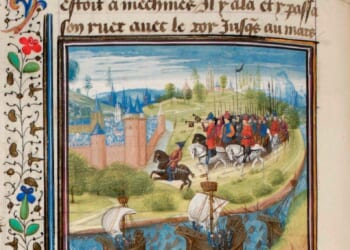 estoit a mechines Il y ala et y passa
son ruet auec le roy Jusqs au mars